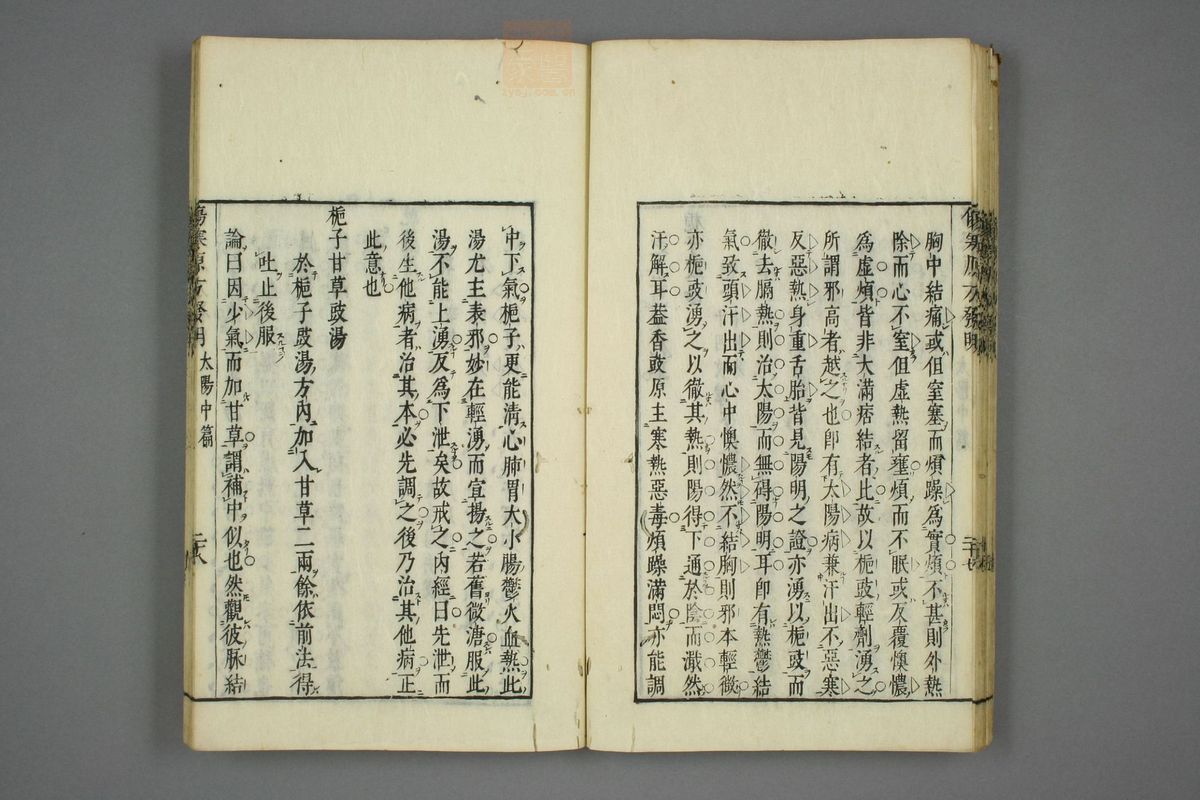 傷寒原方發明
胸中結痛或但窒塞而煩躁為實煩不甚則外熱
除而心不窒但虛熱留壅煩而不眠或反覆懊憹
為虛煩皆非大滿痞結者比故以梔豉輕劑湧之
所謂邪高者越之也卽有太陽病兼汗出不惡寒
反惡熱身重舌胎皆見陽明之證亦湧以梔豉而
徹去膈熱則治太陽而無碍陽明耳卽有熱鬱結
氣致頭汗出而心中懊憹然不結胸則邪本輕微
亦梔豉湧之以徹其熱則陽得下通於陰而濈然
汗解耳葢香豉原主寒熱惡毒煩躁滿悶亦能調
中下氣梔子更能清心肺胃大小腸鬱火血熱此
湯尤主表邪妙在輕湧而宣揚之若舊微溏服此
湯不能上湧反為下泄矣故戒之內經曰先泄而
後生他病者治其本必先調之後乃治其他病正
此意也
梔子甘草豉湯
於梔子豉湯方內加入甘草二兩餘依前法得
吐止後服
論曰因少氣而加甘草謂補中似也然觀彼脉結
傷寒原方發明 太陽中篇 二十八
zysj.com.cn